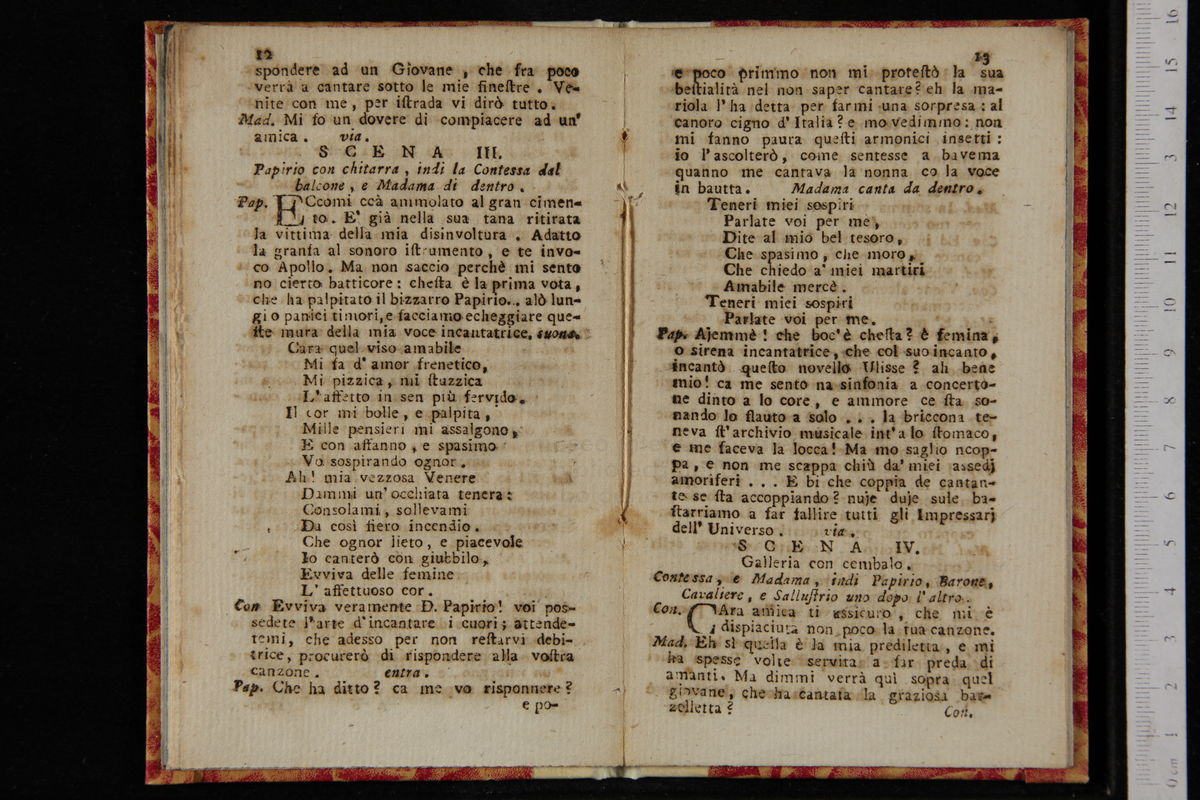 12
spondere ad un Giovane , che fra poco
verrà a cantare sotto le mie fineſtre . Ve-
nite con me , per iſtrada vi dirò tutto .
Mad. Mi fo un dovere di compiacere ad un'
amica . via .
SCENA III.
Papirio con chitarra , indi la Contessa dal
balcone , e Madama di dentro .
Pap. ECcomi ccà ammolato al gran cimen-
to . E' già nella sua tana ritirata
la vittima della mia disinvoltura . Adatto
la granfa al sonoro iſtrumento , e te invo-
co Apollo . Ma non saccio perchè mi sento
no cierto batticore : cheſta è la prima vota ,
che ha palpitato il bizzarro Papirio... alò lun-
gi o panici timori, e facciamo echeggiare que-
ſte mura della mia voce incantatrice. suona.
Cara quel viso amabile
Mi fa d'amor frenetico,
Mi pizzica , mi ſtuzzica
L'affetto in sen più fervido .
Il cor mi bolle , e palpita ,
Mille pensieri mi assalgono ,
E con affanno , e spasimo
Vo sospirando ognor .
Ah ! mia vezzosa Venere
Dammi un' occhiata tenera :
Consolami , sollevami
Da così fiero incendio .
Che ognor lieto , e piacevole
Io canterò con giubbilo ,
Evviva delle femine
L' affettuoso cor .
Con Evviva veramente D. Papirio ! voi pos-
sedete l'arte d'incantare i cuori ; attende-
temi , che adesso per non reſtarvi debi-
trice, procurerò di rispondere alla voſtra
canzone . entra .
Pap. Che ha ditto ? ca me vo risponnere ?
e po-
13
e poco primmo non mi proteſtò la sua
beſtialità nel non saper cantare ? eh la ma-
riola l'ha detta per farmi una sorpresa : al
canoro cigno d'Italia ? e mo vedimmo : non
mi fanno paura queſti armonici insetti :
io l'ascolterò , come sentesse a bavema
quanno me cantava la nonna co la voce
in bautta . Madama canta da dentro .
Teneri miei sospiri
Parlate voi per me ,
Dite al mio bel tesoro ,
Che spasimo , che moro ,
Che chiedo a' miei martiri
Amabile mercè .
Teneri miei sospiri
Parlate voi per me .
Pap. Ajemmè ! che boc'è cheſta ? è femina ,
o sirena incantatrice , che col suo incanto ,
incantò queſto novello Ulisse ? ah bene
mio ! ca me sento na sinfonia a concerto-
ne dinto a lo core , e ammore ce ſta so-
nando lo flauto a solo . . . la briccona te-
neva ſt'archivio musicale int'a lo ſtomaco,
e me faceva la locca ! Ma mo saglio ncop-
pa , e non me scappa chiù da' miei assedj
amoriferi . . . E bi che coppia de cantan-
te se ſta accoppiando ? nuje duje sule ba-
ſtarriamo a far fallire tutti gli Impressarj
dell' Universo . via .
SCENA IV.
Galleria con cembalo .
Contessa , e Madama , indi Papirio, Barone,
Cavaliere , e Salluſtrio uno dopo l'altro .
Con. CAra amica ti assicuro , che mi è
dispiaciuta non poco la tua canzone.
Mad. Eh sì quella è la mia prediletta , e mi
ha spesse volte servita a far preda di
amanti. Ma dimmi verrà quì sopra quel
giovane , che ha cantata la graziosa bar-
zelletta ?
Con.
0 cm 1 2 3 4 5 6 7 8 9 10 11 12 13 14 15 16